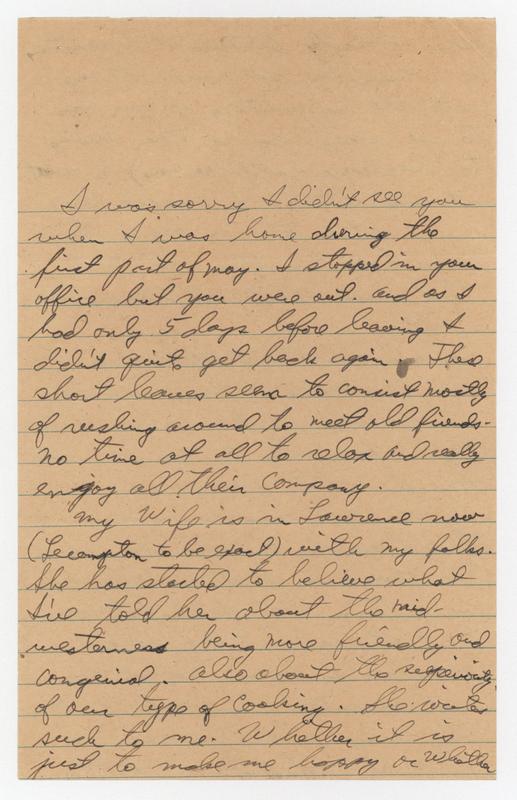 I was sorry I didn't see you
when I was home during the
first part of may. I stopped in your
office but you were out. and as I
had only 5 days before leaving I
didn't quite get back again. These
short leaves seem to consist mostly
of rushing around to meet old friends-
no time at all to relax and really
enjoy all their company.
My Wife is in Lawrence now
(Lecompton to be exact) with my folks.
She has started to believe what
I've told her about the mid-
westerners being more friendly and
congenial. also about the superiority
of our type of cooking. She writes
such to me. Whether it is
just to make me happy or Whether